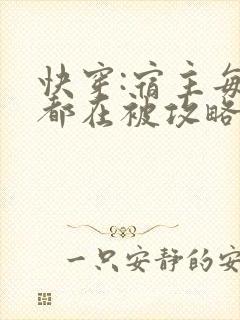 快穿:宿主每
都在被攻略
一只安静的安